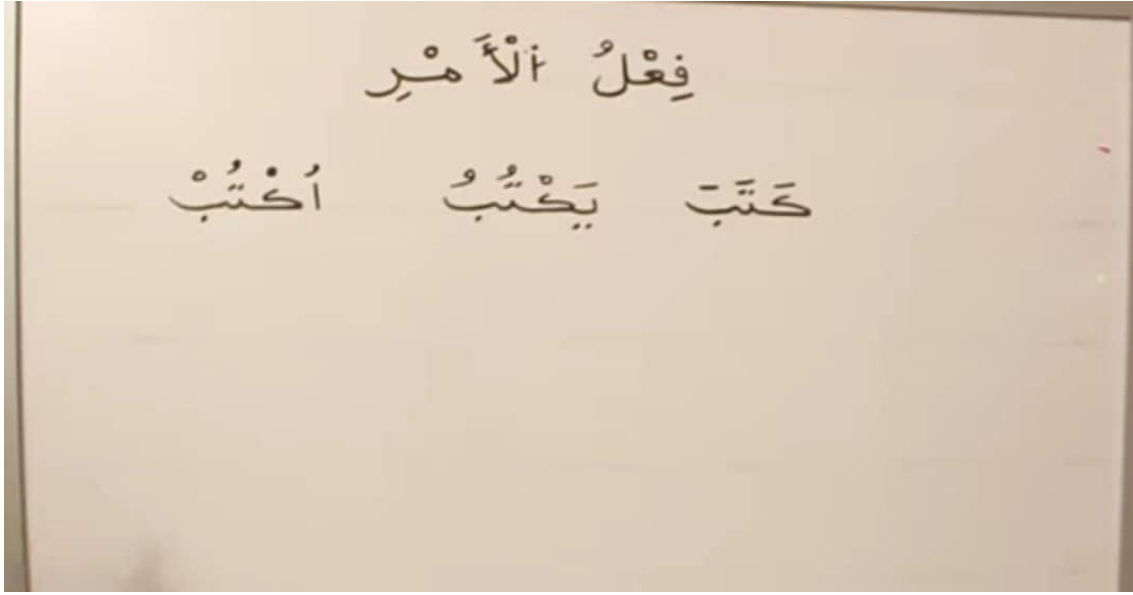 فِعْلُ ٱلْأَمْرِ
كَتَبَ يَكْتُبُ اُكْتُبْ